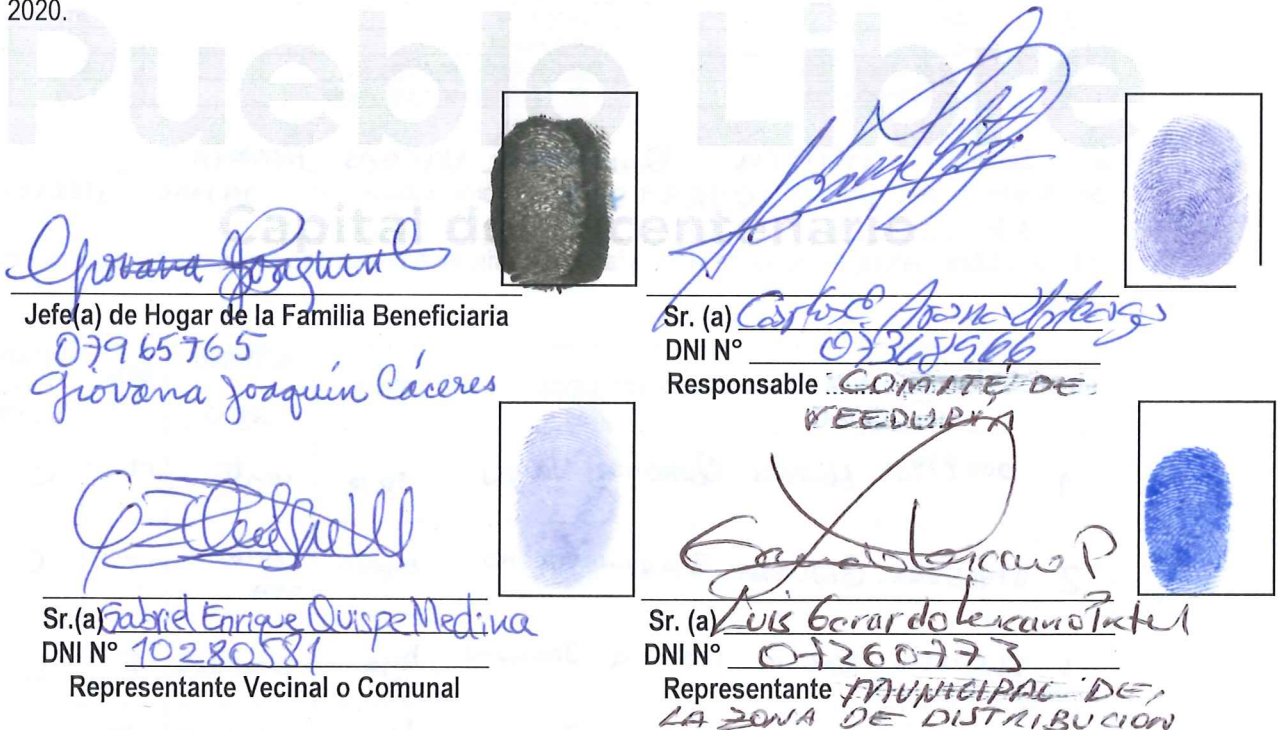 2020.
Pueblo Libre
Capital del Bicentenario
Giovana Joaquin C
Jefe(a) de Hogar de la Familia Beneficiaria
07965765
Giovana Joaquín Cáceres
Sr. (a) Carlos E. Arana
DNI N° 07368966
Responsable COMITÉ DE
VEEDURÍA
Sr.(a) Gabriel Enrique Quispe Medina
DNI N° 10280581
Representante Vecinal o Comunal
Gerardo Lezcano P
Sr. (a) Luis Gerardo Lezcano
DNI N° 07260773
Representante MUNICIPAL DE
LA ZONA DE DISTRIBUCION